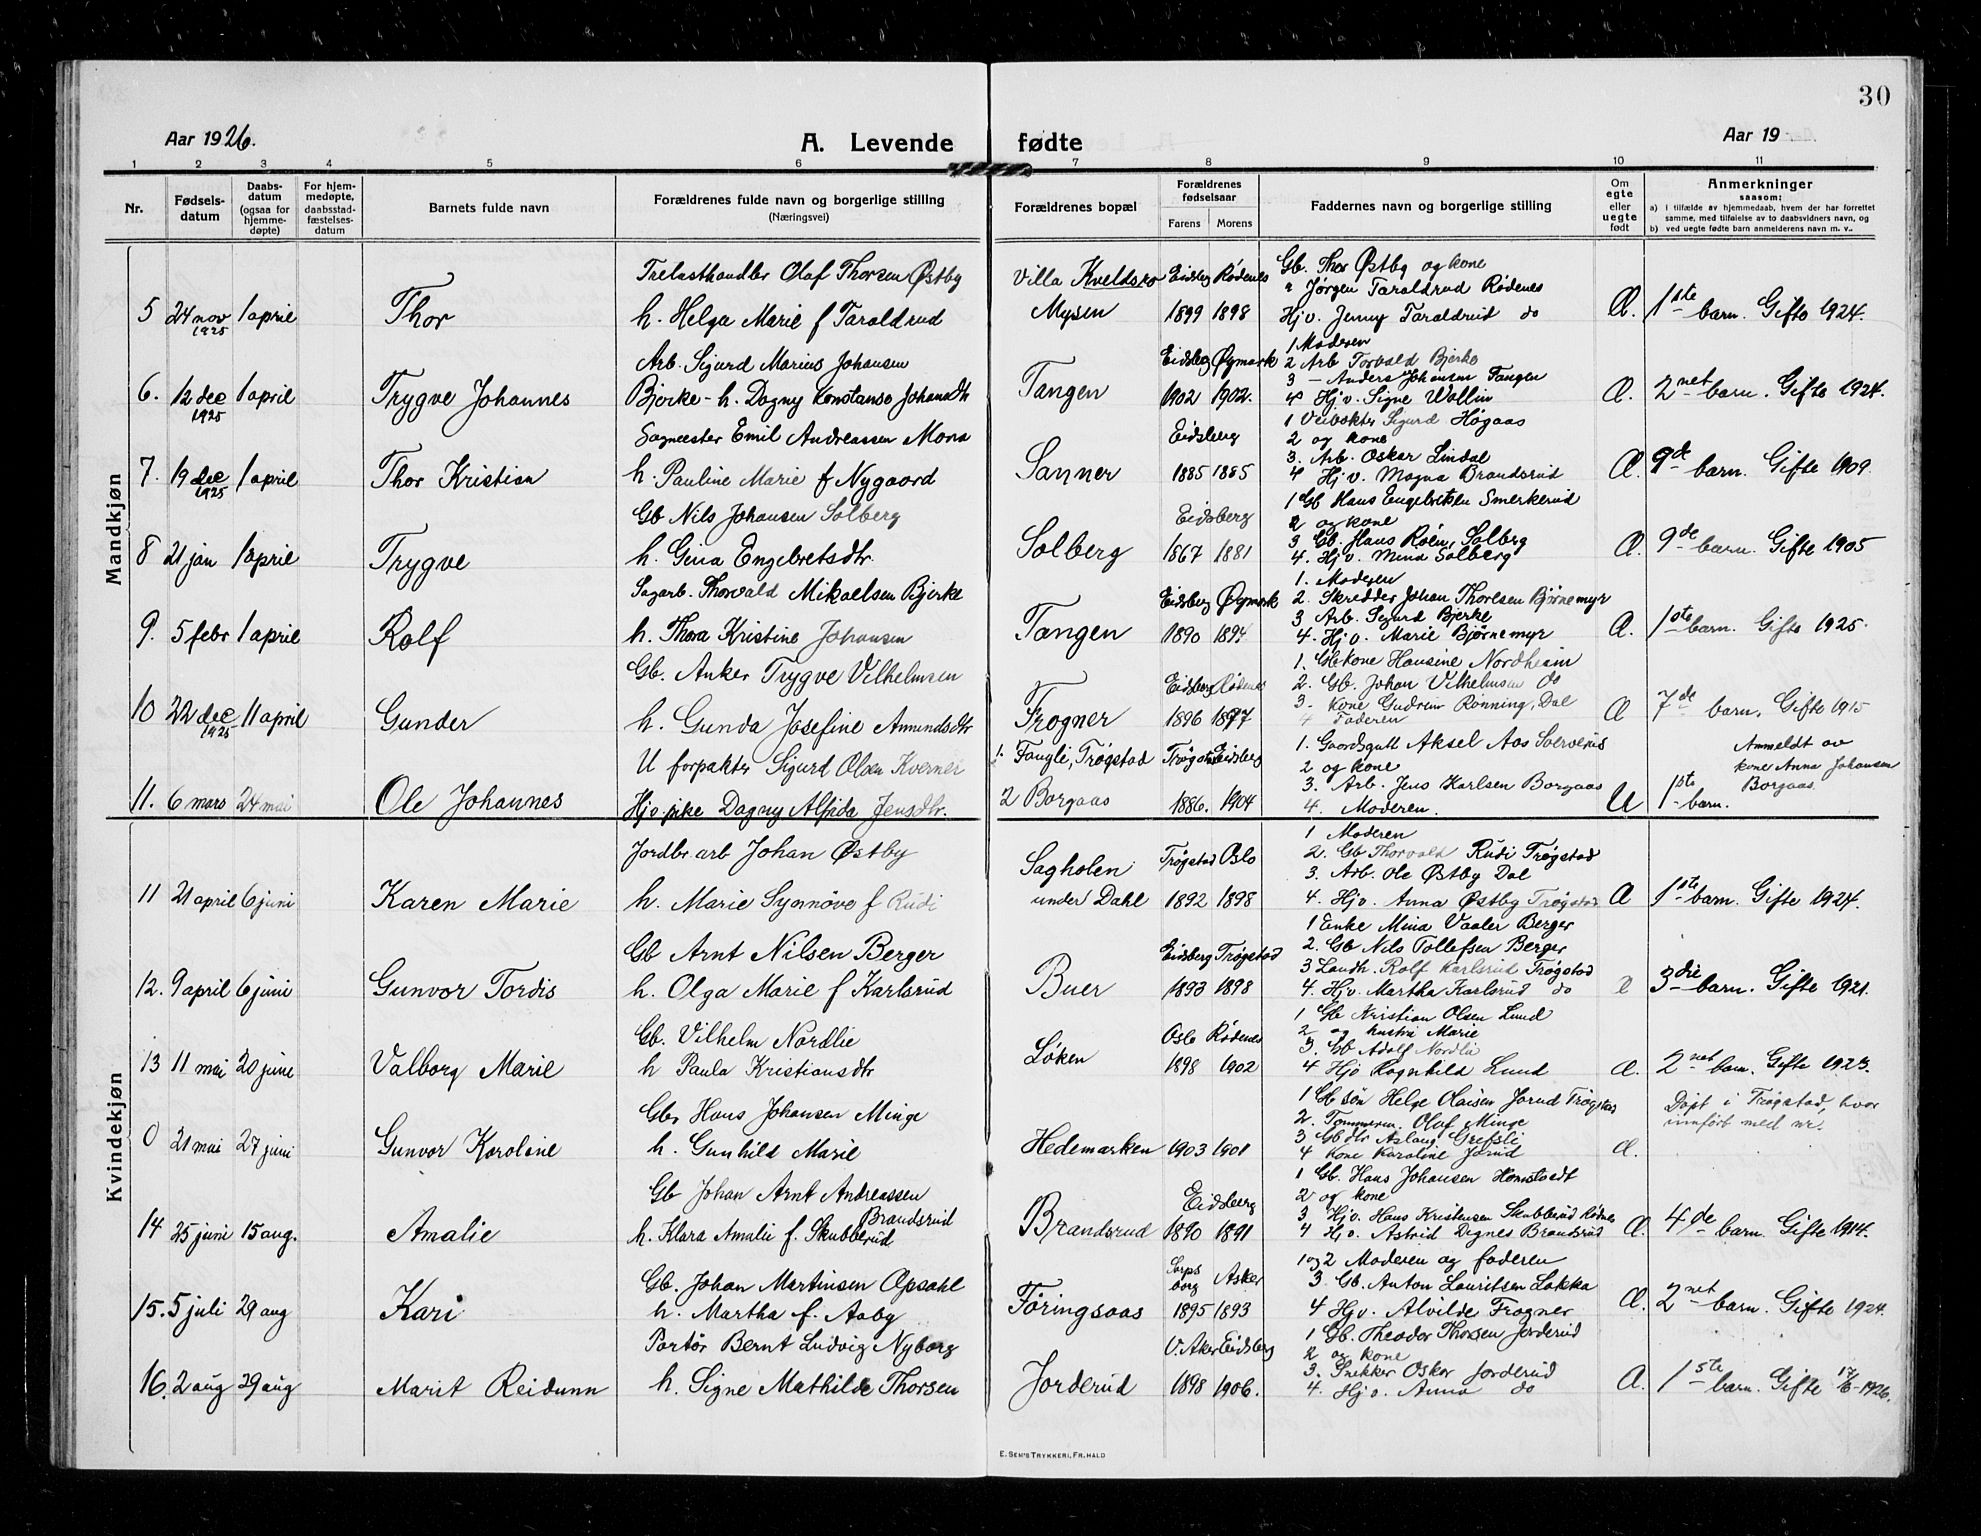 30
Aar 1926.
A. Levende fødte
Aar 19
1 2 3 4 5 6 7 8 9 10 11
Nr.
Fødsels-
datum
Daabs-
datum
(ogsaa for
hjemme-
døpte)
For hjem-
medøpte,
daabsstad-
fæstelses-
datum
Barnets fulde navn
Forældrenes fulde navn og borgerlige stilling
(Næringsvei)
Forældrenes bopæl
Forældrenes
fødselsaar
Farens Morens
Faddernes navn og borgerlige stilling
Om
egte
eller
uegte
født
Anmerkninger
saasom:
a) i tilfælde av hjemmedaab, hvem der har forrettet
samme, med tilføielse av to daabsvidners navn, og
b) ved uegte fødte barn anmelderens navn m. v..
Mandkjøn
5 24 nov 1925 1 april
Thor
Trelasthandler Olaf Thorsen Østby
h. Helga Marie f Taraldrud
Villa Kveldsro
Mysen
Eidsberg Rødenes
1899 1898
Gb. Thor Østby og kone
" Jørgen Taraldrud Rødenes
Hjv. Jenny Taraldrud do
Æ. 1ste barn. Gifte 1924.
6. 12 dec 1925 1 april
Trygve Johannes
Arb. Sigurd Marius Johansen
Bjørke - h. Dagny Konstanse Johansdtr
Tangen
Eidsberg Øymark
1902 1902.
1 Moderen
2 Arb Torvald Bjerke
3 - Anders Johansen Tangen
4 Hjv. Signe Wollin
Æ. 2net barn. Gifte 1924.
7. 19 dec 1925 1 april
Thor Kristian
Sagmester Emil Andreassen Mona
h. Pauline Marie f Nygaard
Sanner
Eidsberg
1885 1885
1 Veivokter Sigurd Høgaas
2 og kone
3. Arb. Oskar Lindal
4 Hjv. Magna Brandsrud
Æ. 9de barn. Gifte 1909.
8 21 jan 1 april
Trygve
Gb Nils Johansen Solberg
h. Gina Engebretsdtr.
Solberg
Eidsberg
1867 1881
1 Gb Hans Engebretsen Smerkerud
2 og kone
3 Gb. Hans Røen, Solberg
4. Hjv. Mina Solberg
Æ. 9de barn. Gifte 1905
9. 5 febr 1 april
Rolf
Sagarb. Thorvald Mikaelsen Bjerke
h. Thora Kristine Johansen
Tangen
Eidsberg Øymark
1890 1894
1. Moderen
2. Skredder Johan Thorlsen Bjørnemyr
3 Arb. Sigurd Bjerke
4. Hjv. Marie Bjørnemyr
Æ. 1ste barn. Gifte 1925.
10 22 dec 1925 11 april
Gunder
Gb. Anker Trygve Vilhelmsen
h. Gunda Josefine Amundsdtr
Frogner
Eidsberg Rødenes
1896 1897
1. Gbkone Hansine Nordheim
2. Gb. Johan Vilhelmsen do
3. kone Gudrun Rønning, Dal
4 Faderen
Æ 7de barn. Gifte 1915
11. 6 mars 24 mai
Ole Johannes
U forpakter Sigurd Olsen Kverner
Hjv. pike Dagny Alfida Jensdtr.
1. Fangli, Trøgstad
2 Borgaas
Trøgstad Eidsberg
1886. 1904
1. Gaardsgutt Aksel Aas
2 og kone
3. Arb. Jens Karlsen Borgaas
4. Moderen.
U 1ste barn.
Anmeldt av
kone Anna Johansen
Borgaas.
Kvindekjøn
11 21 april 6 juni
Karen Marie
Jordbr. arb Johan Østby
h. Marie Synnøve f Rudi
Sagholen
under Dahl
Trøgstad Oslo
1892 1898
1 Moderen
2. Gb Thorvald Rudi Trøgstad
3. Arb. Ole Østby Dal
4. Hjv. Anna Østby Trøgstad
Æ 1ste barn. Gifte 1924.
12. 9 april 6 juni
Gunvor Tordis
Gb Arnt Nilsen Berger
h. Olga Marie f Karlsrud
Buer
Eidsberg Trøgstad
1893 1898
1 Enke Mina Vaaler Berger
2. Gb Nils Tollefsen Berger
3 Landh. Rolf Karlsrud Trøgstad
4. Hjv. Martha Karlsrud do
Æ 3die barn. Gifte 1921.
13 11 mai 20 juni
Valborg Marie
Gb. Vilhelm Nordlie
h Paula Kristiansdtr
Løken
Oslo Rødenes
1898 1902
1 Gb Kristian Olsen Lund
2 og hustru Marie
3. Gb Adolf Nordli
4 Hjv Ragnhild Lund
Æ. 2net barn. Gifte 1923.
0 21 mai 27 juni
Gunvor Karoline
Gbr Hans Johansen Minge
h. Gunhild Marie
Hedemarken
1903 1901
1 Gb søn Helge Olaisen Jørud Trøgstad
2. Tømmerm. Olaf Minge
3 Gb dtr Aslaug Grefsli
4 kone Karoline Jørud
Æ.
Døpt i Trøgstad, hvor
innført med nr.
14 25 juni 15 aug.
Amalie
Gb Johan Arnt Andreassen
Brandsrud
h. Klara Amalie f. Skubberud
Brandsrud
Eidsberg
1890 1891
1 Gb. Hans Johansen Homstvedt
2 og kone
3 Hjv. Hans Kristensen Skubberud Rødnes
4 Hjv. Astrid Dignes Brandsrud
Æ. 4de barn. Gifte 1914.
15. 5 juli 29 aug
Kari
Gb. Johan Martinsen Opsahl
h. Martha f. Aaby
Føringsaas
Sarps
borg Asker
1895 1893
1 og 2 Moderen og faderen
3 Gb. Anton Lauritsen Løkka
4 Hjv. Alvilde Frogner
Æ. 2net barn. Gifte 1924.
16. 2 aug 29 aug
Marit Reidunn
Portør Bernt Ludvig Nyborg
h. Signe Mathilde Thorsen
Jorderud
V. Aker Eidsberg
1898 1906.
1 Gb. Theodor Thorsen Jorderud
2 og kone
3. Snekker Oskar Jorderud
4. Hjv. Anna do
Æ. 1ste barn. Gifte 17/6-1926.
E. SEM'S TRYKKERI, FR. HALD